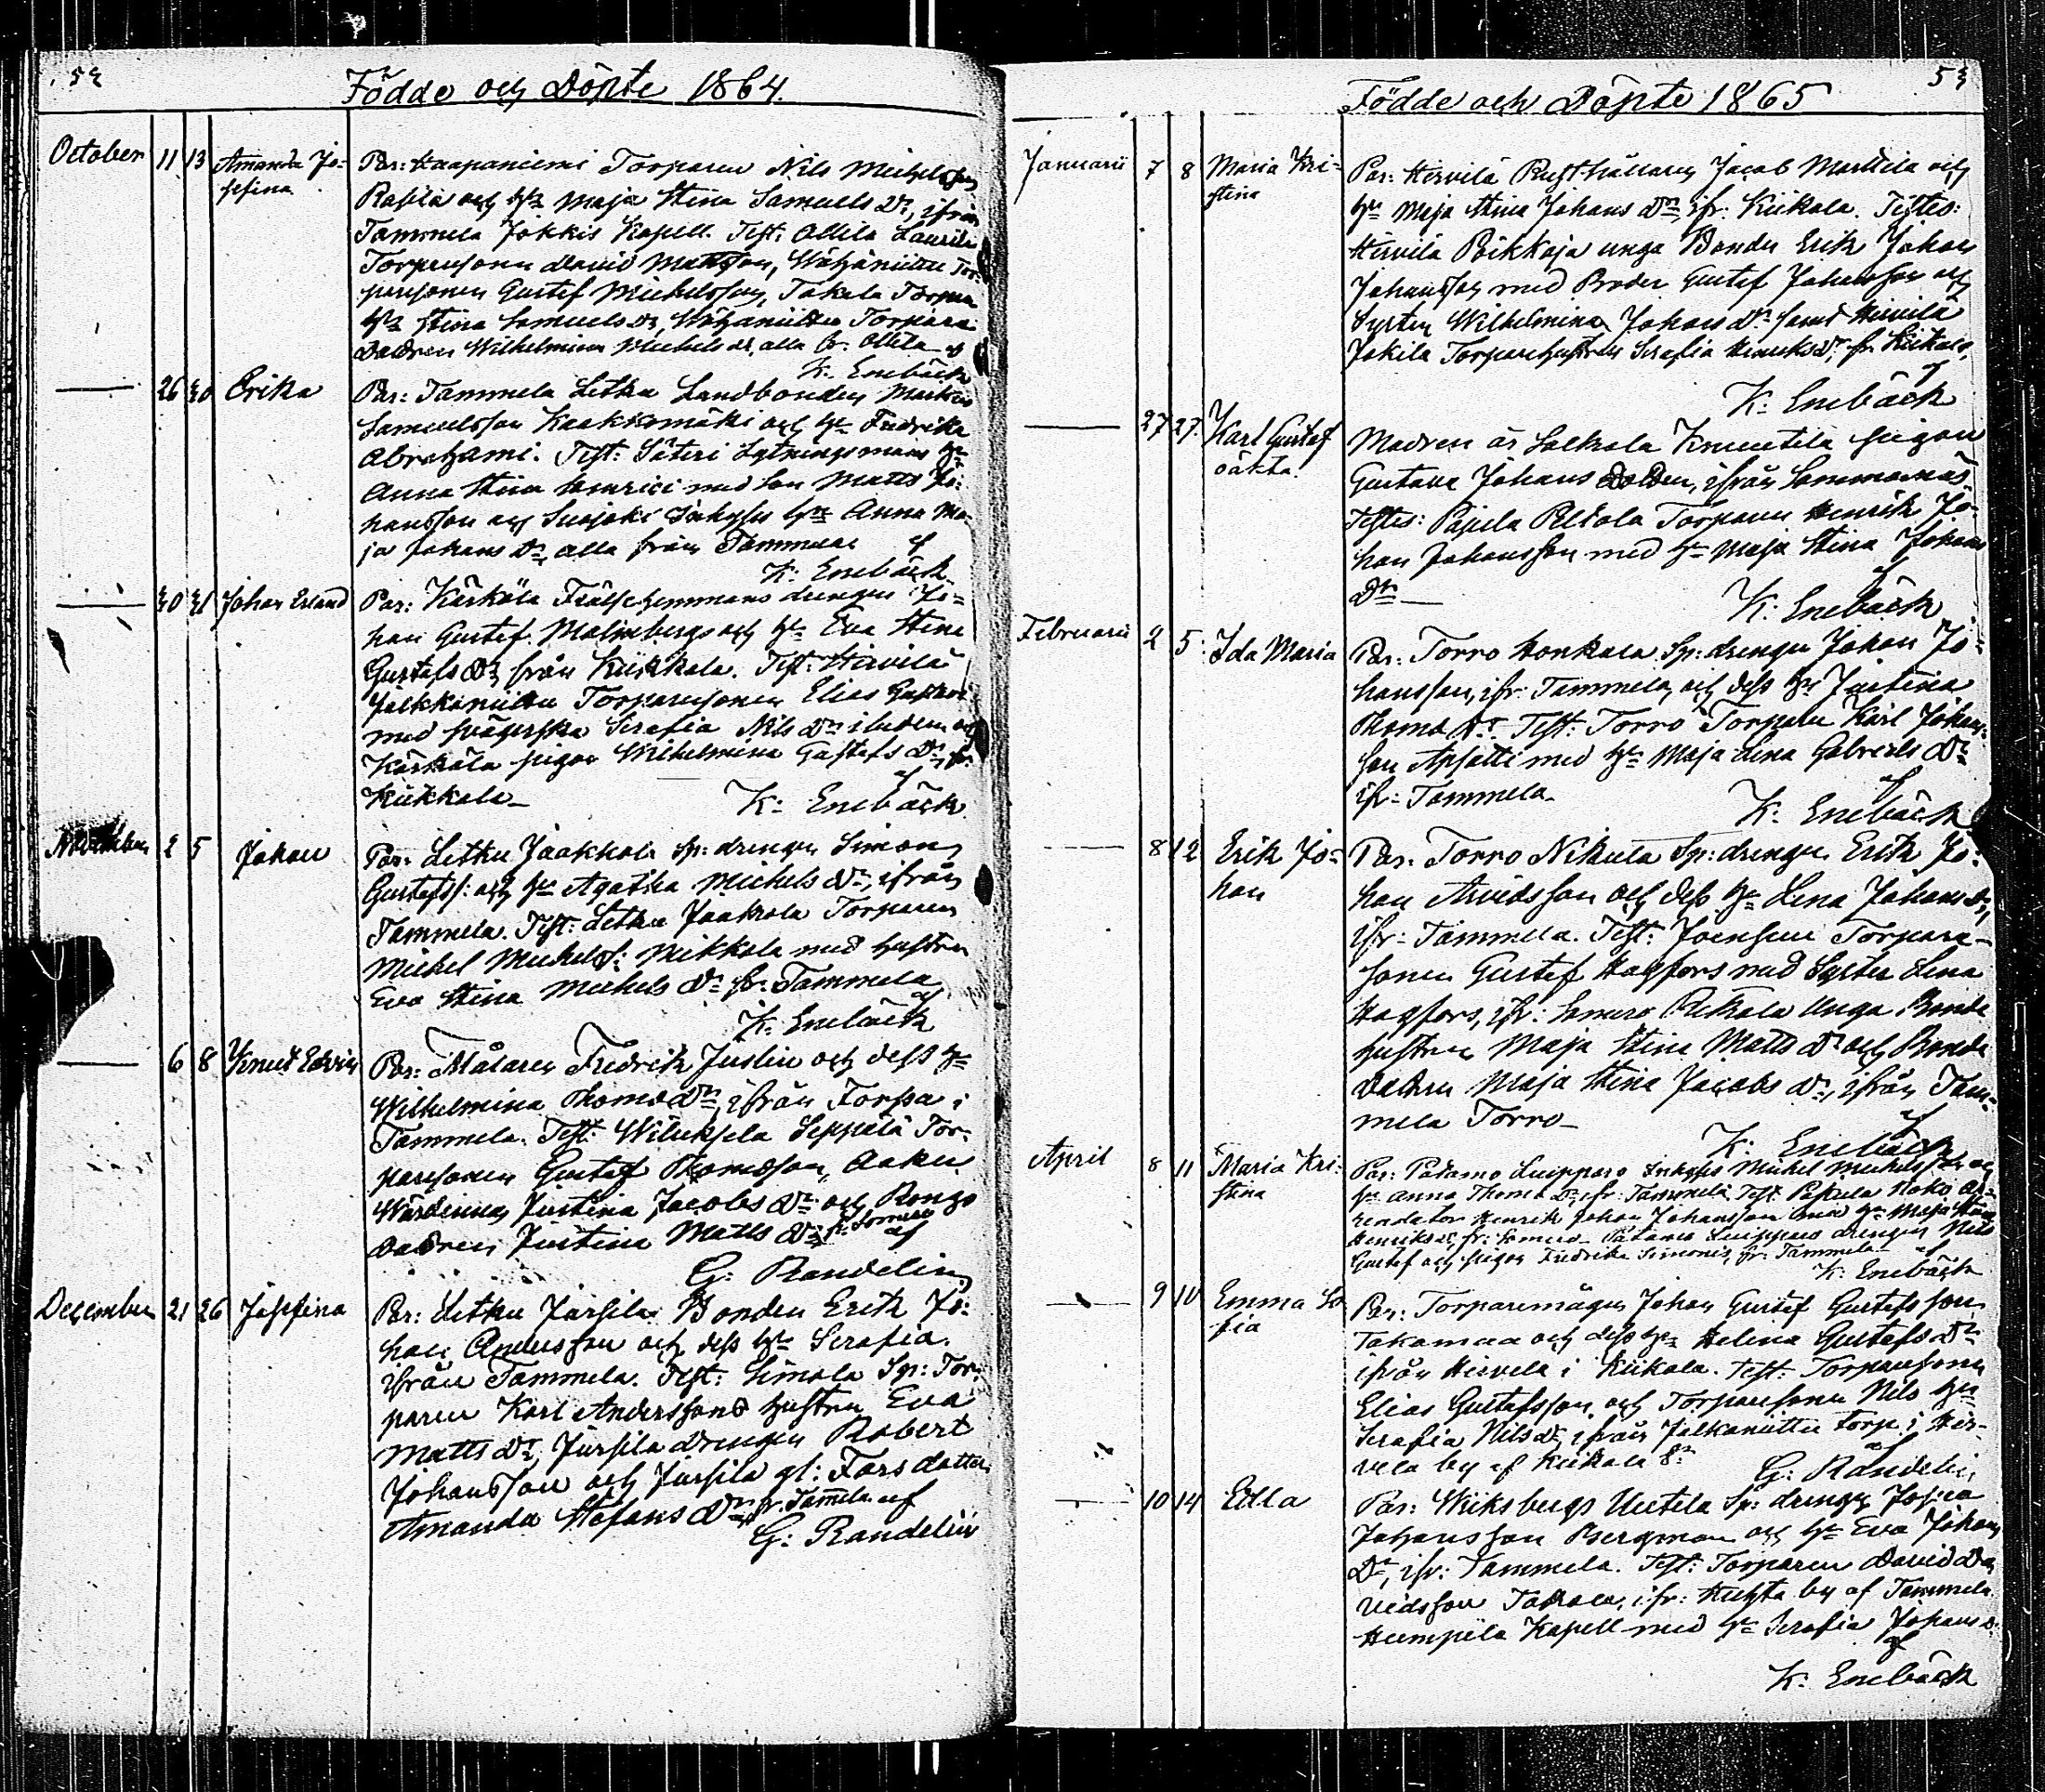 52
Födde och Döpte 1864.
October 11 13 Amanda Jo-
sefina
Par: Haapaniemi Torparen Nils Michelsson
Rapila och h:u Maja Stina Samuels Dr, ifrån
Tammela Jokkis Kapell. Test: Ollila Laurila
Torparesonen David Mattsson, Wähäniittu Tor-
paresonen Gustaf Michelsson, Takala Torpare
h:u Stina Samuels Dr, Wähäniittu Torpare
Dottren Wilhelmina Michels Dr, alla fr. Ollila af
K: Enebäck
26 30 Erika
Par: Tammela Letku Landbonden Mattias
Samuelsson Kaakkomäki och h:u Fredrika
Abrahami. Test: Säteri Lytningsmans h:u
Anna Stina Henrici med Son Matts Jo-
hansson och Suojoki Inhyses h:u Anna Ma-
ja Johans Dr, alla från Tammela af
K: Enebäck
30 31 Johan Erland
Par: Kärkölä Frälsehemmans drengen Jo-
han Gustaf Malmberg och h:u Eva Stina
Gustafs Dr från Kiikkala. Test: Hirvelä
Jalkkaniittu Torparesonen Elias Gustafss.
med svägerska Serafia Nils Dr ibidem och
Kärkölä pigan Wilhelmina Gustafs Dr, fr.
Kiikkala af
K: Enebäck
November 2 5 Johan
Par: Letku Jaakkola Sp: drengen Simon
Gustafss: och h:u Agatha Michels Dr, ifrån
Tammela. Test: Letku Jaakkola Torparen
Michel Michelss: Mikkola med hustru
Eva Stina Michels Dr fr. Tammela af
K: Enebäck
6 8 Knut Edvin
Par: Målaren Fredrik Juslin och dess h:u
Wilhelmina Thomæ Dr, ifrån Torpa i
Tammela. Test: Wiluksela Seppälä Tor-
paresonen Gustaf Thomasson, Aaku
Wärdinnan Justina Jacobs Dr och Rongo
Dottren Justina Matts Dr fr. Somero af
G: Randelin
December 21 26 Josefina
Par: Letku Jursila Bonden Erik Jo-
han Andersson och dess h:u Serafia.
ifrån Tammela. Test: Simola Sp: Tor-
paren Karl Anderssons hustru Eva
Matts Dr, Jursila drengen Robert
Johansson och Jursila gl: Fars dotter
Amanda Stefans Dr fr. Tammela af
G: Randelin
53
Födde och Döpte 1865
Januarii 7 8 Maria Kri-
stina
Par: Hirvilä Rusthållaren Jacob Marttila och
h:u Maja Stina Johans Dr, ifr. Kiikala. Testes:
Hirvilä Poikkoja unga Bonden Erik Johan
Johansson med Broder Gustaf Johansson och
Syster Wilhelmina Johans Dr samt Hirvilä
Jakila Torparehustrun Serafia Henriks Dr, fr. Kiikala,
af
K: Enebäck
27 27. Karl Gustaf
oäkta
Modren är Salkola Knuutila pigan
Gustava Johans Dotter, ifrån Sommarnäs
Testes: Pajula Peltola Torparen Henrik Jo-
han Johansson med h:u Maja Stina Johans
Dr af
K: Enebäck
Februarii 2 5 Ida Maria
Par: Torro Honkala Sp: drengen Johan Jo-
hansson, ifr: Tammela, och dess h:u Justina
Thomæ Dr. Test: Torro Torparen Karl Johans-
son Apsatti med h:u Maja Lena Gabriels Dr
ifr: Tammela af
K: Enebäck
8 12 Erik Jo-
han
Par: Torro Nikula Sp: drengen Erik Jo-
han Arvidsson och dess h:u Lena Johans Dr,
ifr: Tammela. Test: Joensuu Torpare-
sonen Gustaf Hagfors med Syster Lena
Hagfors, ifr: Somero Pekala Unga Bonde
hustrun Maja Stina Matts Dr och Bonde
Dottren Maja Stina Jacobs Dr, ifrån Tam-
mela Torro af
K: Enebäck
April 8 11 Maria Kri-
stina
Par: Patamo Luippas Inhyses Michel Michelsson och
h:u Anna Thomæ Dr, fr: Tammela, Test: Pajula Noko Ar-
rendator Henrik Johan Johansson med h:u Maja Stina
Henriks Dr fr: Somero Patamo Luippas drengen Nils
Gustaf och pigan Fredrika Simonis, fr: Tammela af
K: Enebäck
9 10 Emma So-
fia
Par: Torparemågen Johan Gustaf Gustafsson
Takamaa och dess h:u Helena Gustafs Dr
ifrån Hirvela i Kiikala. Test: Torparesonen
Elias Gustafsson och Torparesonen Nils h:u
Serafia Nils Dr, ifrån Jalkaniittu torp i Hir-
vela by af Kiikala Sn af
G: Randelin
10 14 Edla
Par: Wiiksbergs Uutela Sp: drengen Josua
Johansson Bergman och h:u Eva Johans
Dr, ifr: Tammela. Test: Torparen David Da-
vidsson Takala, ifr: Huhta by af Tammela
Humpila Kapell med h:u Serafia Johans D.
af
K: Enebäck